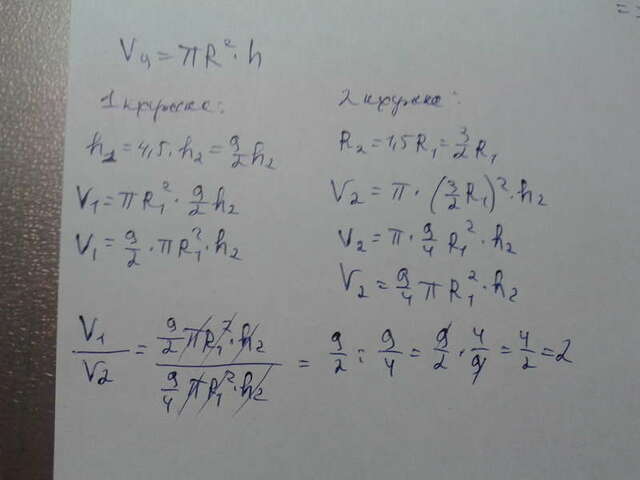 Vц = πR²·h
1 кружка:
h₂ = 4,5·h₂ = 9/2 h₂
V₁ = πR₁²·9/2 h₂
V₁ = 9/2·πR₁²·h₂
2 кружка:
R₂ = 1,5R₁ = 3/2 R₁
V₂ = π·(3/2 R₁)²·h₂
V₂ = π·9/4 R₁²·h₂
V₂ = 9/4 πR₁²·h₂
V₁/V₂ = (9/2 πR₁²·h₂)/(9/4 πR₁²·h₂) = 9/2 : 9/4 = 9/2·4/9 = 4/2 = 2